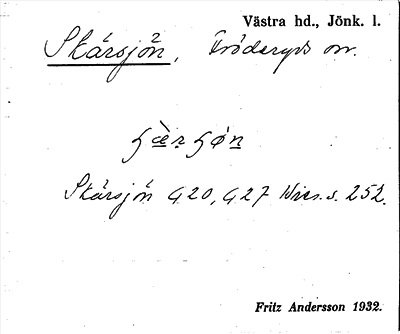 Västra hd., Jönk. l.
Skärsjön, Fröderyds sn.
Skärsjön G 20, G 27 Wies. s. 252.
Fritz Andersson 1932.